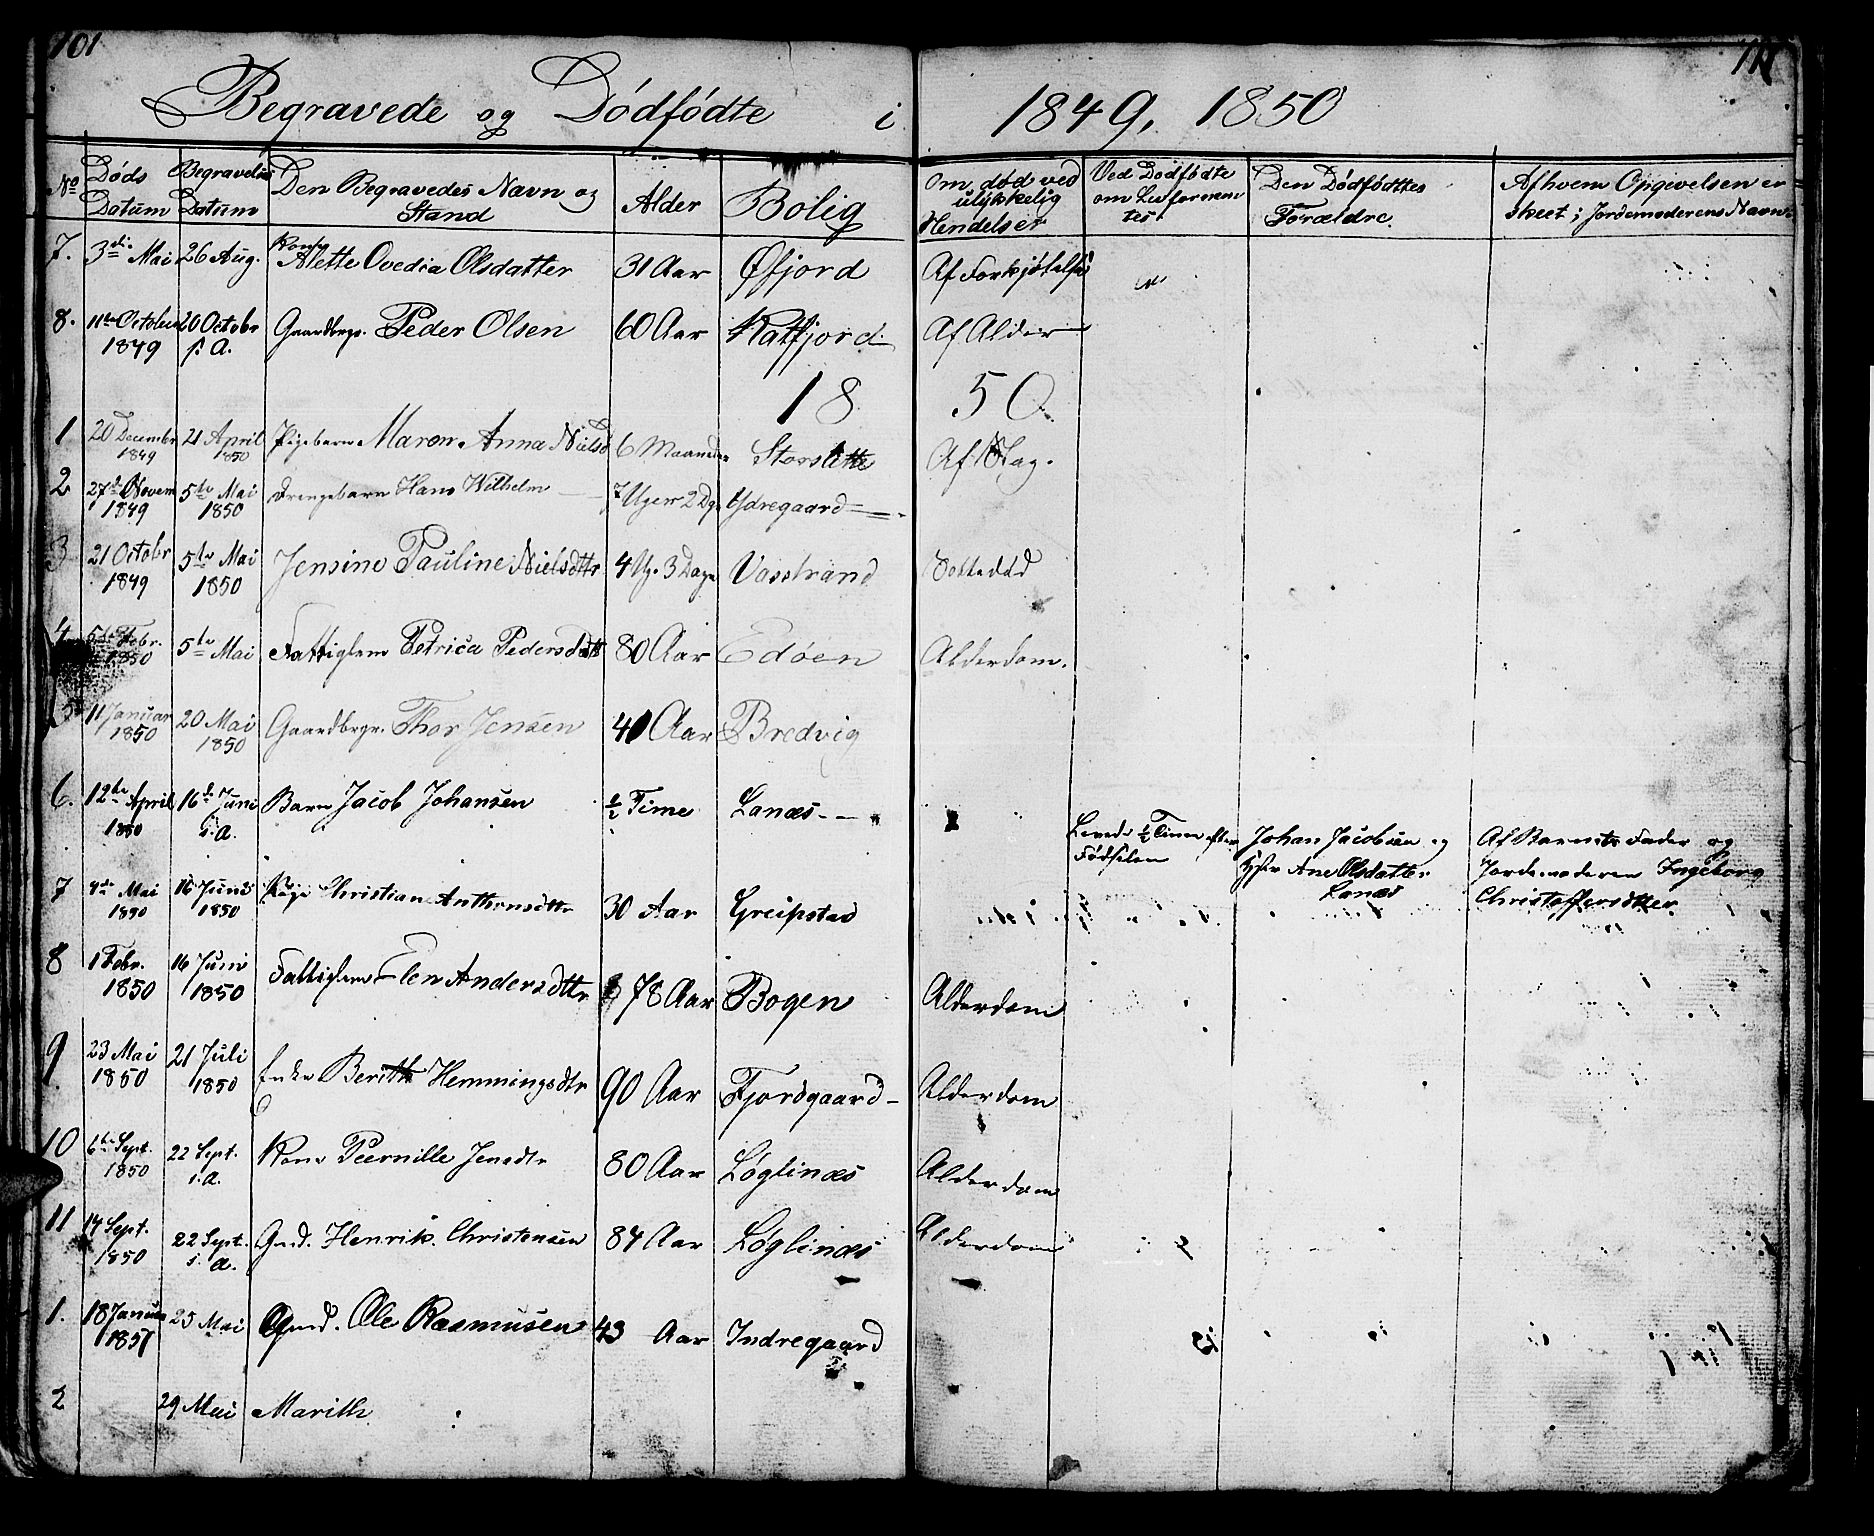 101
Begravede og Dödfödte i 1849, 1850
No Döds Datum Begravelses Datum Den Begravedes Navn og Stand Alder Bolig Om död ved ulykkelig Hendelser Ved Dödfödte om Den Dödfödttes Forældre. Af hvem Opgivelsen er skeet; Jordemoderens Navn.
7. 3die Mai 26 Aug. Kone Alette Ovedia Olsdatter 31 Aar Øfjord Af Forkjølelse
8. 11te October 1849 20 Octobr s. A. Gaardbrgr. Peder Olsen 60 Aar Katfjord Af Alder
1850
1 20 Decembr 1849 21 April 1850 Pigebarn Maren Anna Nielsd 6 Maaneder Storslette Af Slag.
2 27d Novem 1849 5te Mai 1850 Drengebarn Hans Wilhelm 7 Uger 2 Dg. Ydregaard
3 21 Octobr 1849 5te Mai 1850 Jensine Pauline Nielsdttr 4 Ug. 3 Dage Vasstrand Sottedöd
4 5te Febr. 1850 5te Mai Fattiglem Petrica Pedersdtt 80 Aar Edøen Alderdom.
5 11 Januar 1850 20 Mai 1850 Gaardbrgr. Thor Jensen 41 Aar Bredvig
6. 12te April 1850 16d Juni s. A. Barn Jacob Johansen ½ Time Lanæs Levede ½ Time efter Födselen Johan Jacobsen og Ane Olsdatter Lanæs Af Barnets Fader og Jordemoderen Ingeborg Christoffersdtter
7 Mai 1850 16 Juni 1850 Pige Christian Anthonsdttr 30 Aar Greipstad
8 1 Febr. 1850 16 Juni 1850 Fattiglem Elen Andersdttr 78 Aar Bogen Alderdom
9 23 Mai 1850 21 Juli 1850 Enke Berith Hemmingsdtr 90 Aar Fjordgaard Alderdom
10 6te Sept. 1850 22 Sept. s. A. Kone Peernille Jensdtr 80 Aar Løglinæs Alderdom
11 14 Sept. 1850 22 Sept. s. A. Gmd. Henrik Christensen 84 Aar Løglinæs Alderdom
1. 18 Januar 1851 25 Mai Gmd. Ole Rasmusen 43 Aar Indregaard
2 29 Mai Marith